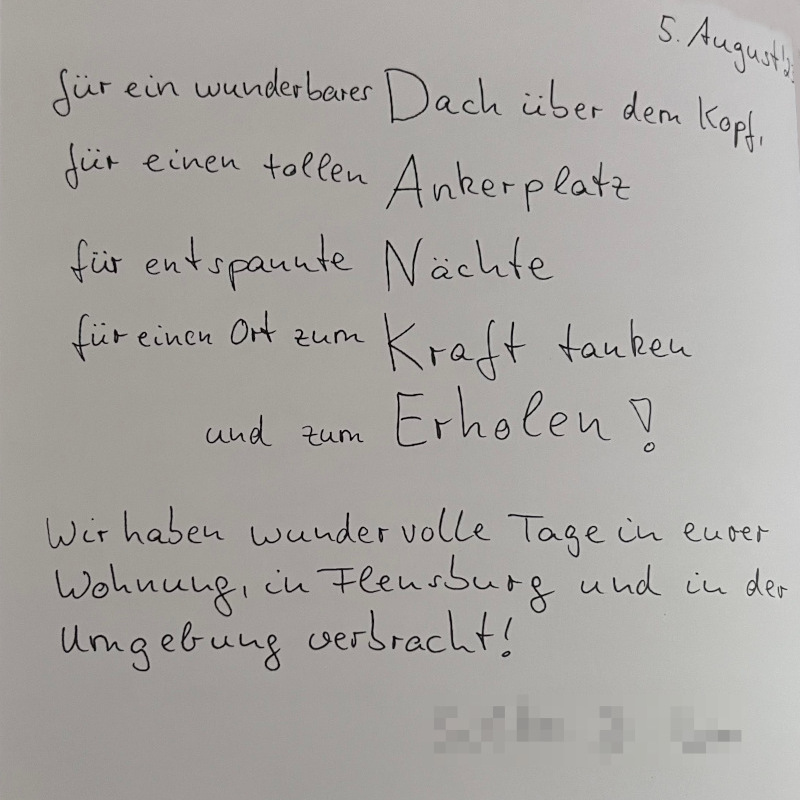 5. August
für ein wunderbares Dach über dem Kopf,
für einen tollen Ankerplatz
für entspannte Nächte
für einen Ort zum Kraft tanken
und zum Erholen!
Wir haben wundervolle Tage in eurer
Wohnung, in Flensburg und in der
Umgebung verbracht!